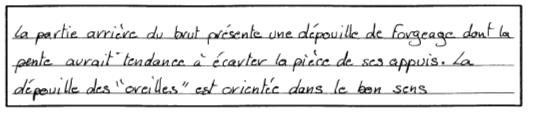 La partie arrière du brut présente une dépouille de forgeage dont la
pente aurait tendance à écarter la pièce de ses appuis. La
dépouille des "oreilles" est orientée dans le bon sens